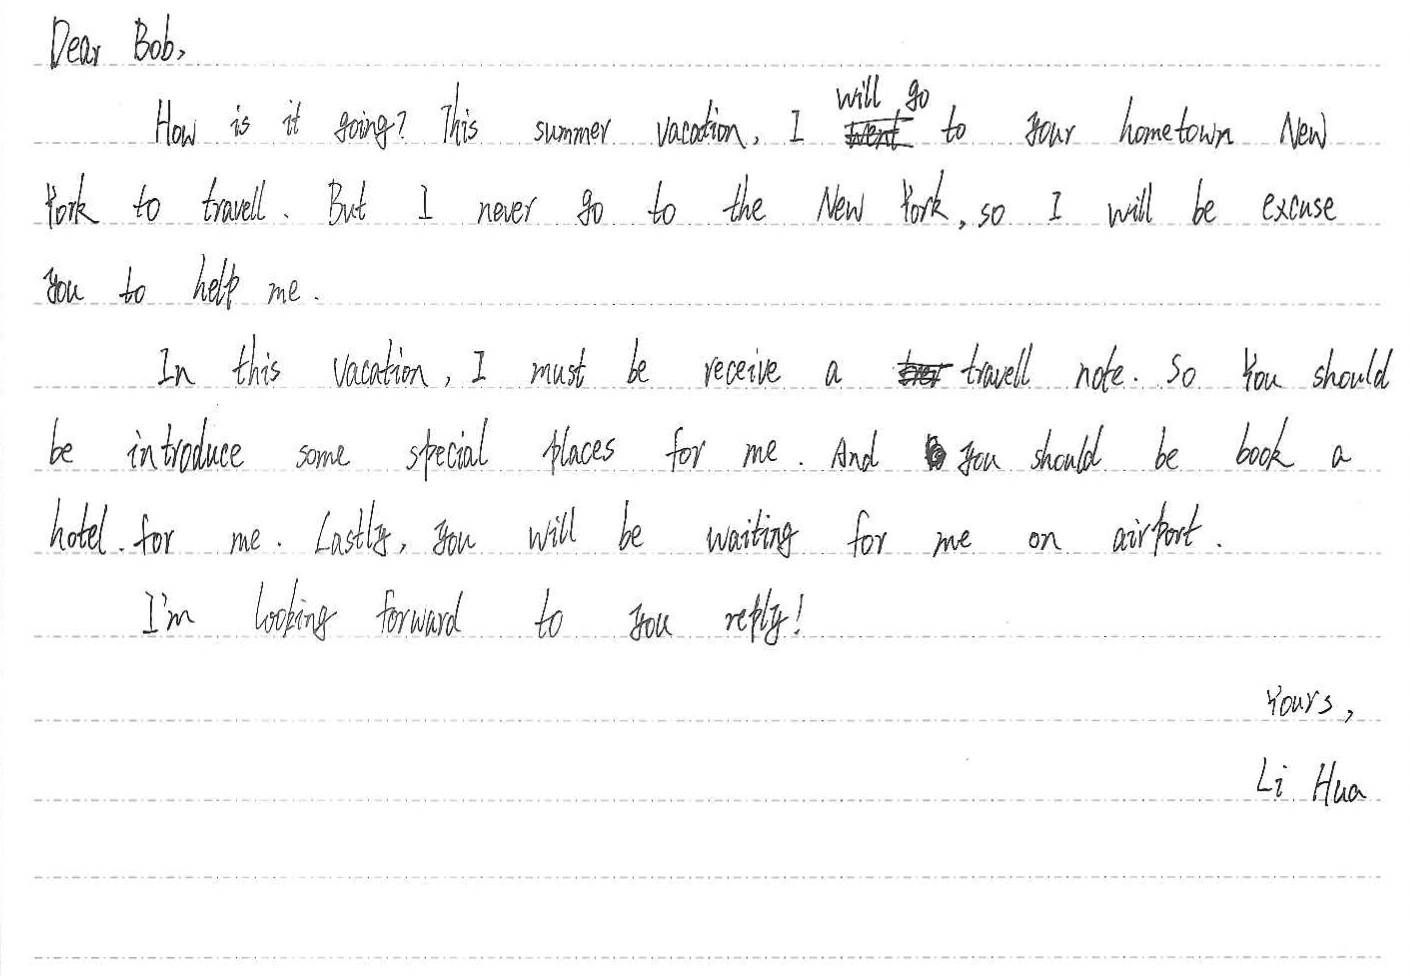 Dear Bob,
How is it going? This summer vacation, I will go to your hometown New
York to travell. But I never go to the New York, so I will be excuse
you to help me.
In this vacation, I must be receive a travell note. So You should
be introduce some special places for me. And you should be book a
hotel for me. Lastly, you will be waiting for me on airport.
I'm looking forward to you reply!
Yours,
Li Hua